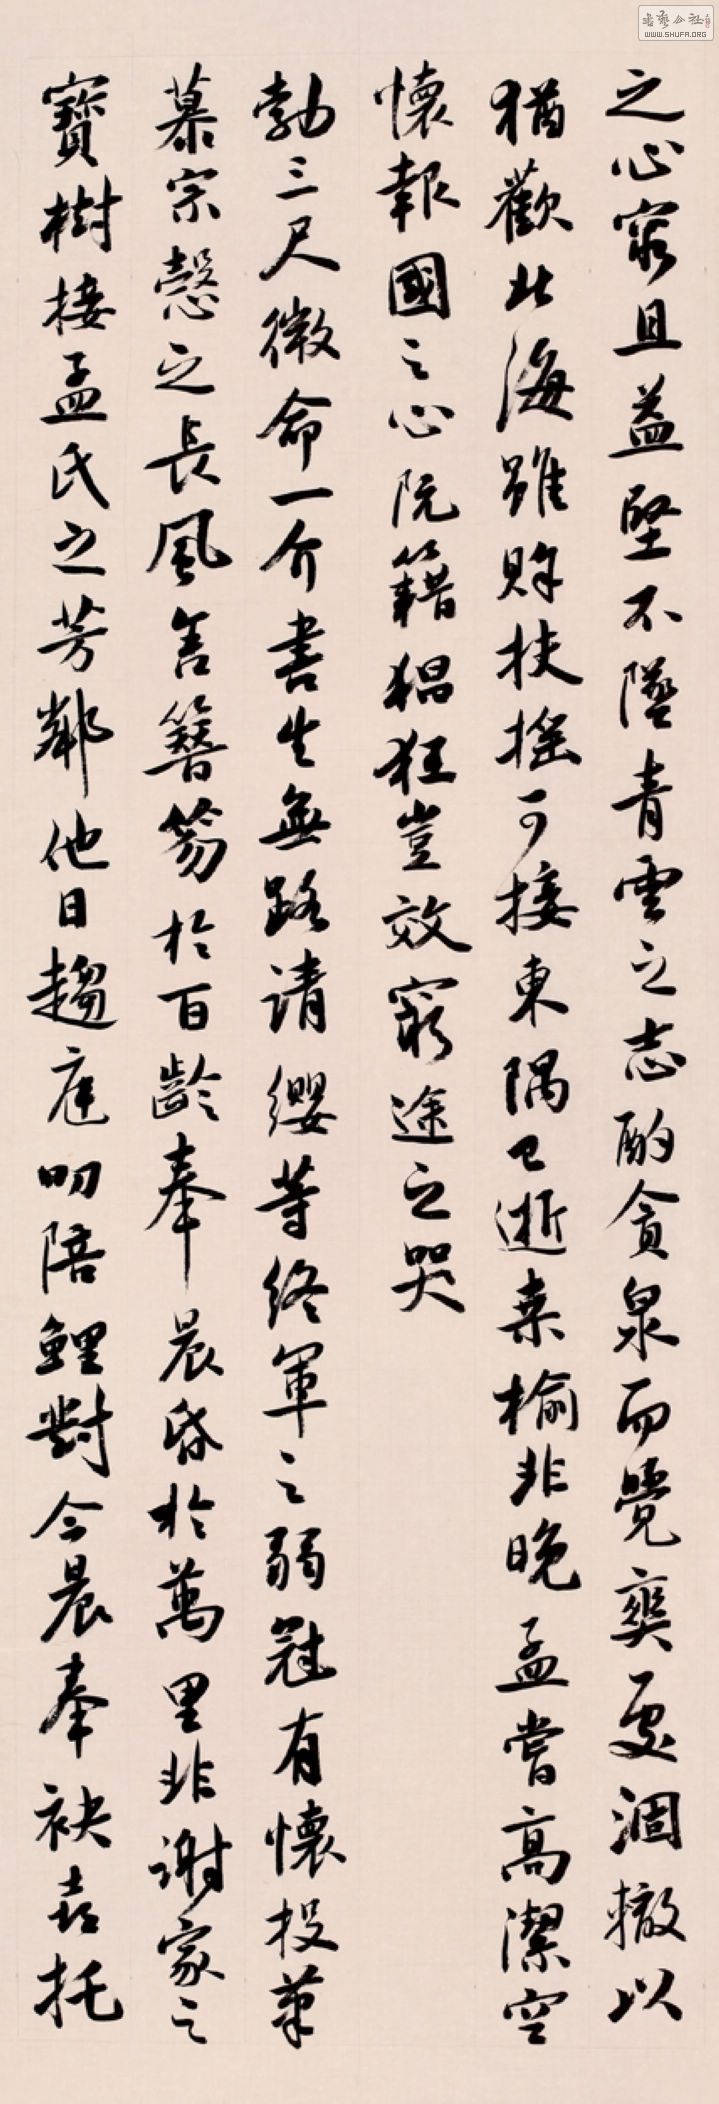 之心窮且益堅不墜青雲之志酌貪泉而覺爽處涸轍以
猶歡北海雖賒扶搖可接東隅已逝桑榆非晚孟嘗高潔空
懷報國之心阮籍猖狂豈效窮途之哭
勃三尺微命一介書生無路請纓等終軍之弱冠有懷投筆
慕宗愨之長風舍簪笏於百齡奉晨昏於萬里非謝家之
寶樹接孟氏之芳鄰他日趨庭叨陪鯉對今晨奉袂喜托
書藝公社
WWW.SHUFA.ORG